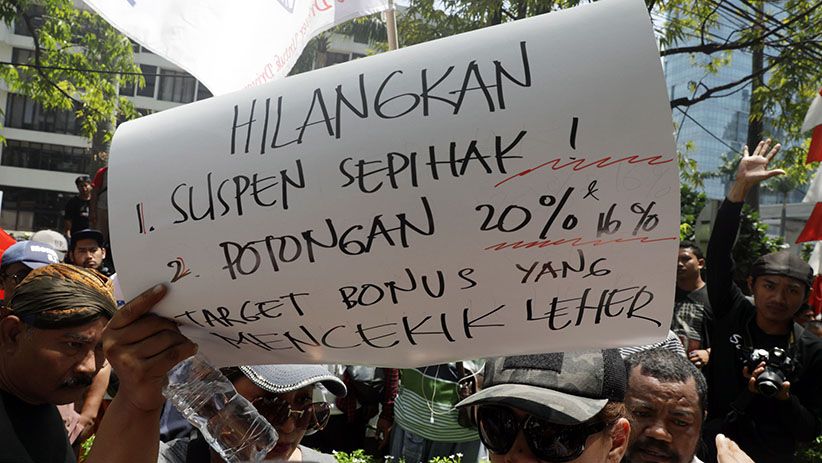 HILANGKAN
1. SUSPEN SEPIHAK !
2. POTONGAN 20% & 16%
TARGET BONUS YANG
MENCEKIK LEHER